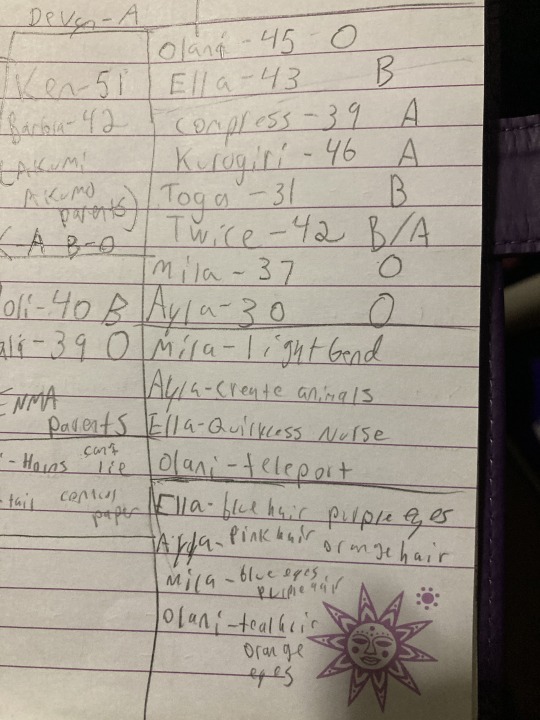 Devon-A
Ken-51
Barbra-42
Akumi
Akumo
parents)
-A B-O
oli-40 B
-39 O
ENMA
parents
-Horns can't
lie
-tail control
paper
Olani -45 - O
Ella-43 B
Compress-39 A
Kurogiri -46 A
Toga -31 B
Twice -42 B/A
Mila -37 O
Ayla-30 O
Mila-light bend
Ayla-create animals
Ella-Quirkless Nurse
Olani-teleport
Ella-blue hair purple eyes
Ayla-Pink hair orange hair
Mila-blue eyes
purple hair
Olani-teal hair
orange
eyes